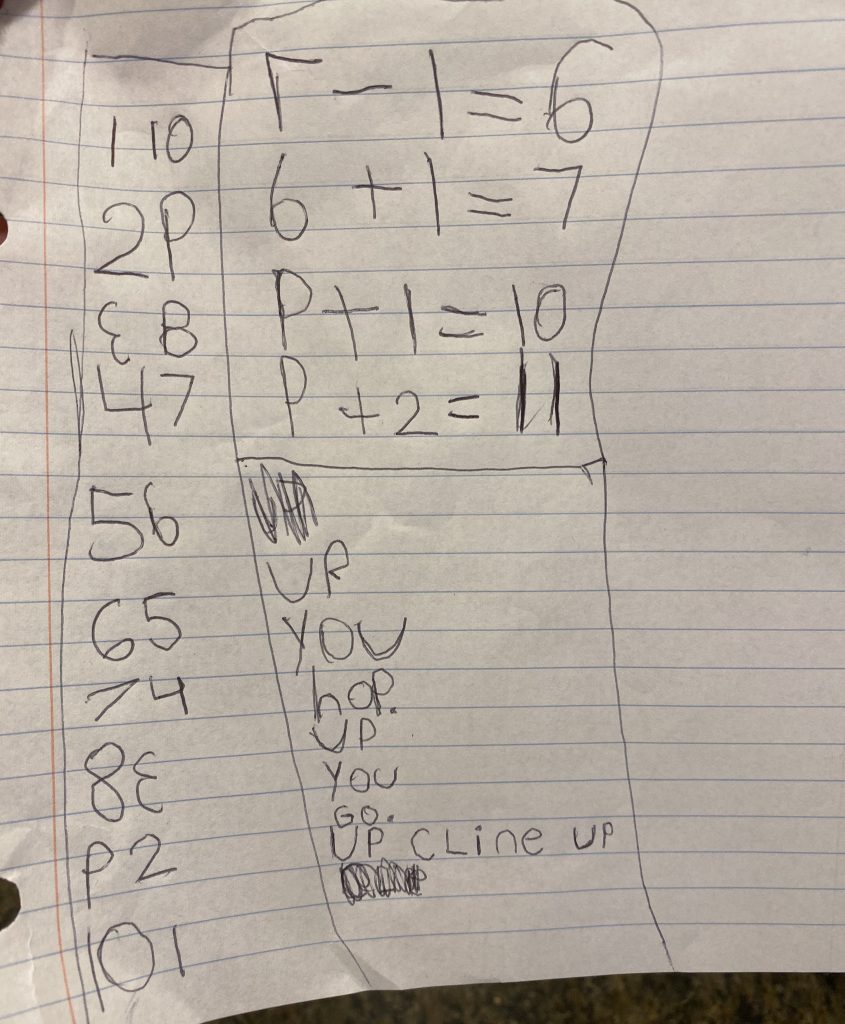 1 10
2 9
3 8
4 7
5 6
6 5
7 4
8 3
9 2
10 1
7 - 1 = 6
6 + 1 = 7
9 + 1 = 10
9 + 2 = 11
UP
YOU
hOP.
UP
YOU
GO.
UP CLine UP